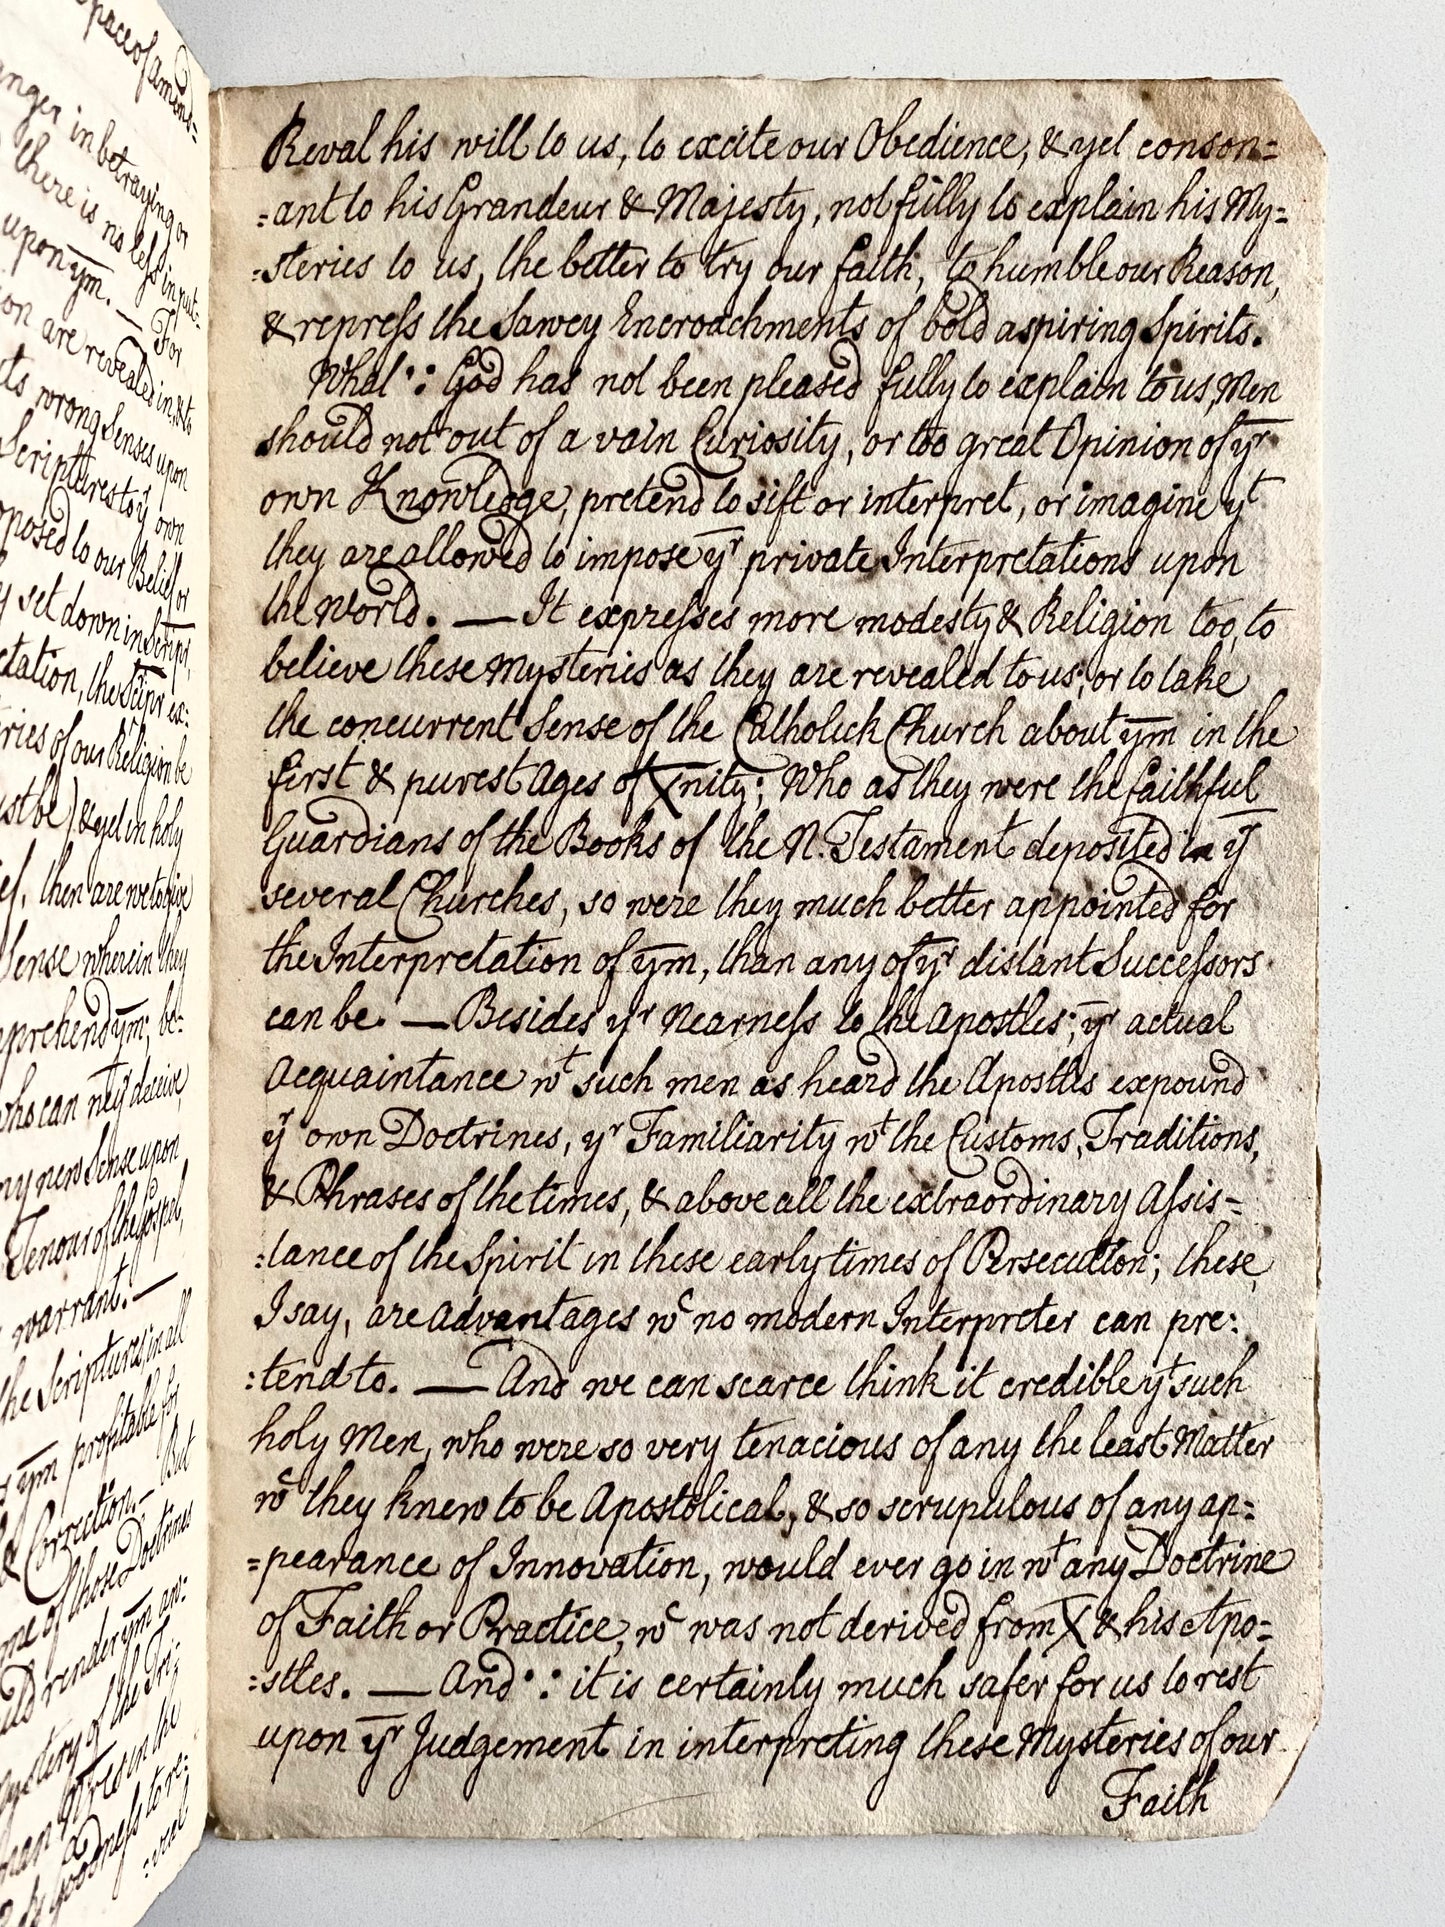 pace of amend-
anger in betraying or
there is no less in put-
upon ym. — For
ion are revealed in, & to
wrong Senses upon
Scriptures to yr own
posed to our Belief or
set down in Script,
tation, the Scripr ex:
ries of our Religion be
ust be) & yet in holy
then are we to give
Sense wherein they
prehend ym; be-
who can deceive
ny new Sense upon
Tenour of the Gospel,
warrant. —
the Scriptures, in all
ym profitable for
& Correction. — But
me of those Doctrines
uld render ym an-
ystery of the Tri-
than in the
goodness to re-
:veal
Reveal his will to us, to excite our Obedience, & yet conson=
=ant to his Grandeur & Majesty, not fully to explain his My=
=steries to us, the better to try our faith, to humble our Reason,
& repress the Sawcy Encroachments of bold aspiring Spirits.
What ∵ God has not been pleased fully to explain to us, Men
should not out of a vain Curiosity, or too great Opinion of yr
own Knowledge, pretend to sift or interpret, or imagine yt
they are allowed to impose yr private Interpretations upon
the World. — It expresses more modesty & Religion too, to
believe these Mysteries as they are revealed to us; or to take
the concurrent Sense of the Catholick Church about ym in the
first & purest Ages of Xnity; Who as they were the faithful
Guardians of the Books of the N. Testament deposited in yr
several Churches, so were they much better appointed for
the Interpretation of ym, than any of yr distant Successors
can be. — Besides yr Nearness to the Apostles; yr actual
Acquaintance wt such men as heard the Apostles expound
yr own Doctrines, yr Familiarity wt the Customs, Traditions,
& Phrases of the times, & above all the extraordinary Assis=
:tance of the Spirit in these early times of Persecution; these,
I say, are Advantages wc no modern Interpreter can pre:
:tend to. — And we can scarce think it credible yt such
holy Men, who were so very tenacious of any the least Matter
wc they knew to be Apostolical, & so scrupulous of any ap=
=pearance of Innovation, would ever go in wt any Doctrine
of Faith or Practice, wc was not derived from X & his Apo=
:stles. — And ∵ it is certainly much safer for us to rest
upon yr Judgement in interpreting these Mysteries of our
Faith